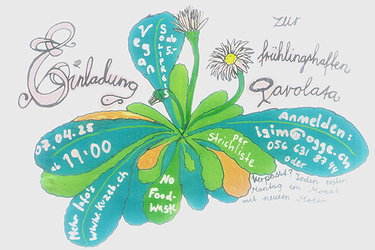 Einladung
zur
frühlingshaften
Gavolata
Vegan
Solipreis
ab 5.-
07.04.25
ab 19:00
Mehr Info's
www.kuzeb.ch
No
Food-
Waste
per
Strichliste
Anmelden:
isim@ogge.ch
056 631 87 44
oder
Verpasst? Jeden ersten
Montag im Monat
mit neuem Motto